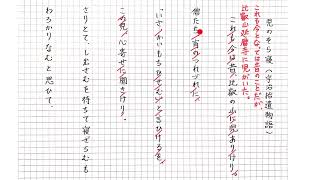 児のそら寝 (宇治拾遺物語)
これも今となっては昔のことだが、
比叡山延暦寺に児がいた。
これも今は昔、比叡の山に児ありけり。
僧たち、宵のつれづれに、
「いざ、かいもちひせむ」と言ひけるを、
この児、心寄せに聞きけり。
さりとて、しださむを待ちて寝ざらむも
わろかりなむと思ひて、